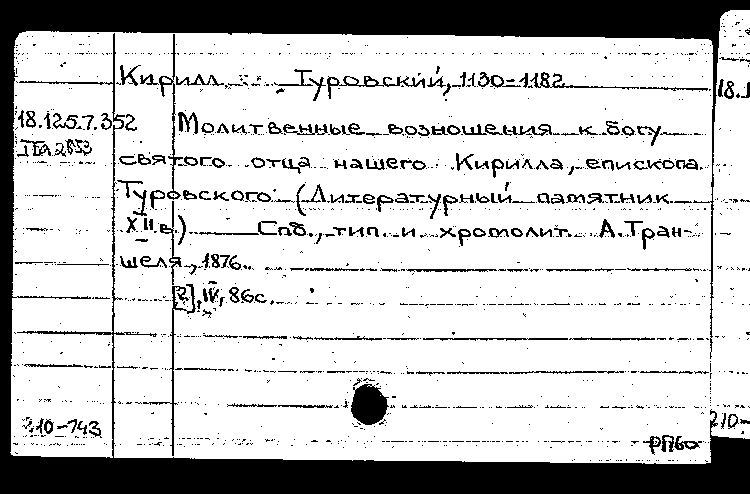 Кирилл Туровский, 1130-1182
18.125.7.352 Молитвенные возношения к богу
святого отца нашего Кирилла, епископа
Туровского (Литературный памятник
XII в.) Спб., тип. и хромолит. А. Тран-
шеля, 1876.
[2], IV, 86с.
210-743
РПбо
18.1
210-